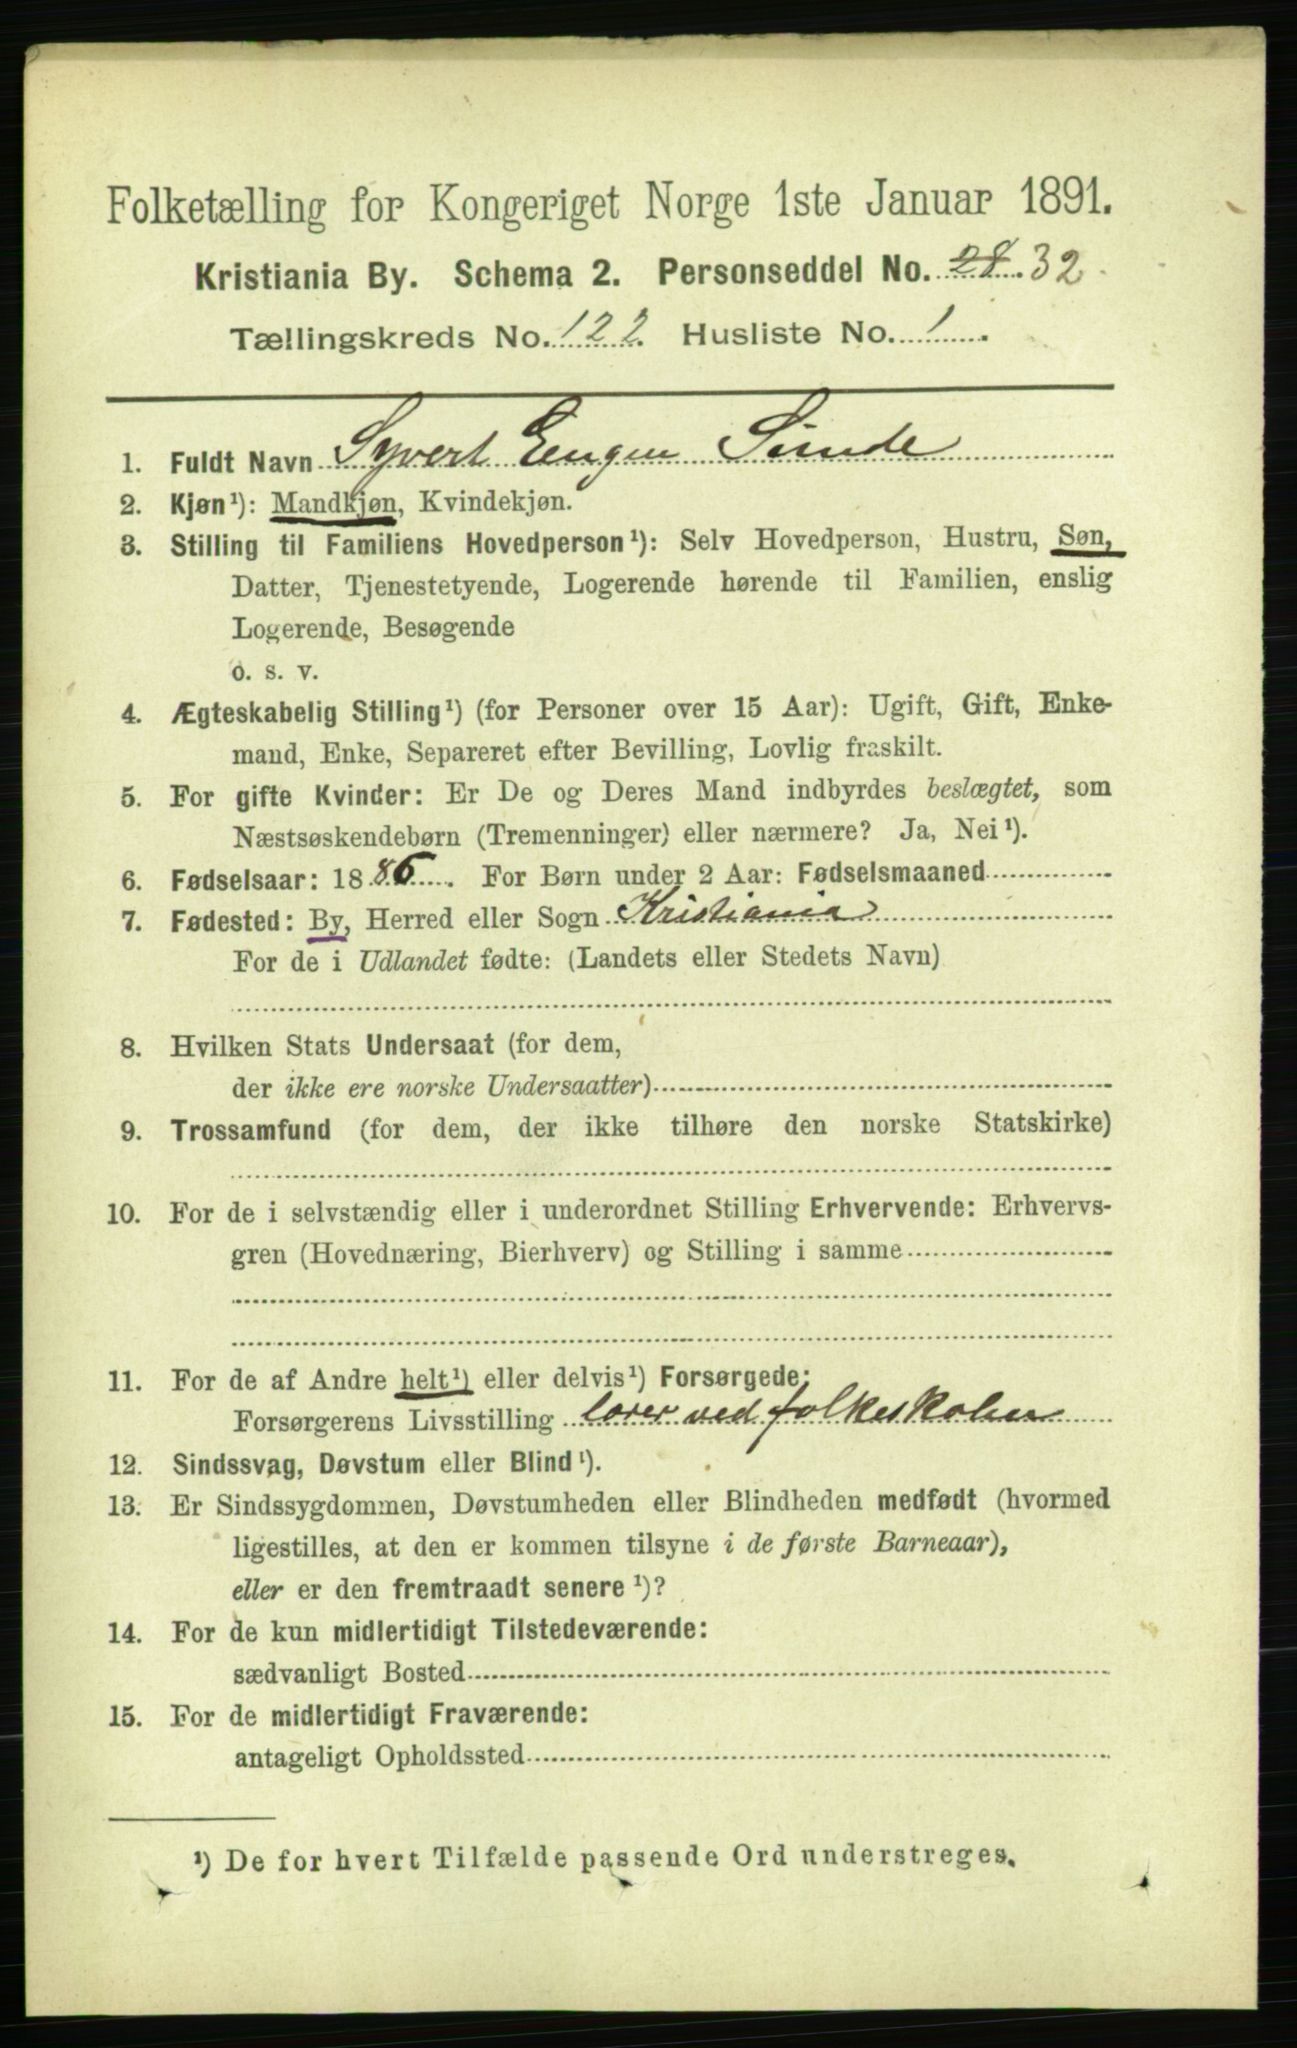 Folketælling for Kongeriget Norge 1ste Januar 1891.
Kristiania By. Schema 2. Personseddel No. 28 32
Tællingskreds No. 122 Husliste No. 1
1. Fuldt Navn Syvert Eugen Sunde
2. Kjøn¹): Mandkjøn, Kvindekjøn.
3. Stilling til Familiens Hovedperson¹): Selv Hovedperson, Hustru, Søn,
Datter, Tjenestetyende, Logerende hørende til Familien, enslig
Logerende, Besøgende
o. s. v.
4. Ægteskabelig Stilling¹) (for Personer over 15 Aar): Ugift, Gift, Enke-
mand, Enke, Separeret efter Bevilling, Lovlig fraskilt.
5. For gifte Kvinder: Er De og Deres Mand indbyrdes beslægtet, som
Næstsøskendebørn (Tremenninger) eller nærmere? Ja, Nei¹).
6. Fødselsaar: 1886. For Børn under 2 Aar: Fødselsmaaned
7. Fødested: By, Herred eller Sogn Kristiania
For de i Udlandet fødte: (Landets eller Stedets Navn)
8. Hvilken Stats Undersaat (for dem,
der ikke ere norske Undersaatter)
9. Trossamfund (for dem, der ikke tilhøre den norske Statskirke)
10. For de i selvstændig eller i underordnet Stilling Erhvervende: Erhvervs-
gren (Hovednæring, Bierhverv) og Stilling i samme
11. For de af Andre helt¹) eller delvis¹) Forsørgede:
Forsørgerens Livsstilling lærer ved folkeskolen
12. Sindssvag, Døvstum eller Blind¹).
13. Er Sindssygdommen, Døvstumheden eller Blindheden medfødt (hvormed
ligestilles, at den er kommen tilsyne i de første Barneaar),
eller er den fremtraadt senere¹)?
14. For de kun midlertidigt Tilstedeværende:
sædvanligt Bosted
15. For de midlertidigt Fraværende:
antageligt Opholdssted
¹) De for hvert Tilfælde passende Ord understreges.